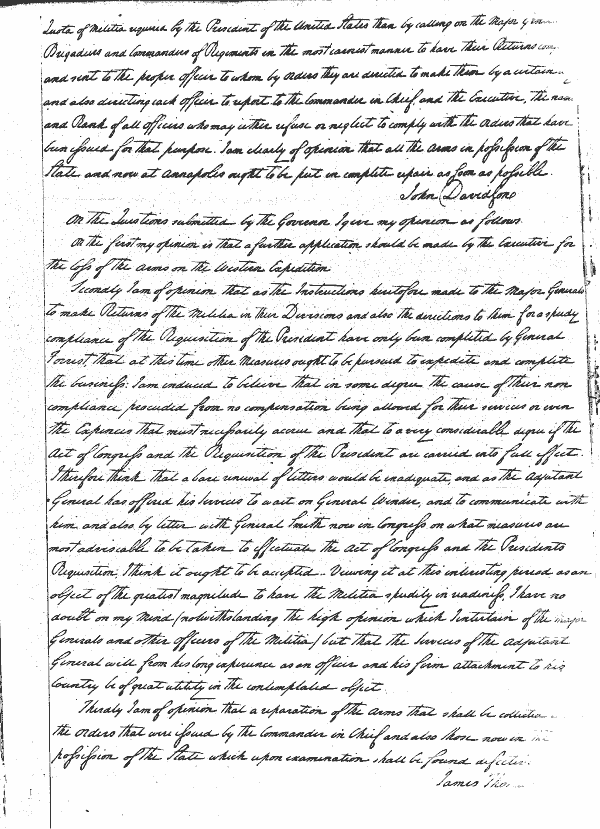 Quota of Militia required by the President of the United States than by calling on the Major
Brigadiers and Commanders of Regiments in the most earnest manner to have their Returns
and sent to the proper officer to whom by orders they are directed to make them by a certain
and also directing each officer to report to the Commander in Chief, and the Executive, the
and Rank of all officers who may either refuse or neglect to comply with the orders that have
been issued for that purpose. I am clearly of opinion that all the Arms in possession of the
State and now at Annapolis ought to be put in complete repair as soon as possible.
John Davidson
On the Questions submitted by the Governor I give my opinion as follows
On the first my opinion is that a further application should be made by the Executive for
the loss of the Arms on the Western Expedition
Secondly I am of opinion that as the Instructions heretofore made to the Major Generals
to make Returns of the Militia in their Divisions and also the directions to them for a speedy
compliance of the Requisition of the President have only been completed by General
Forrest, that at this time other Measures ought to be pursued to expedite and complete
the business. I am induced to believe that in some degree the cause of their non
compliance proceeded from no compensation being allowed for their services or even
the Expences that must necessarily accrue and that to a very considerable degree if the
Act of Congress and the Requisition of the President are carried into full effect.
I therefore think that a bare renewal of letters would be inadequate, and as the Adjutant
General has offered his Services to wait on General Winder, and to communicate with
him and also by letter with General Smith now in Congress on what measures are
most adviseable to be taken to effectuate the Act of Congress and the Presidents
Requisition, I think it ought to be accepted. Viewing it at this interesting period as an
object of the greatest magnitude to have the Militia speedily in readiness, I have no
doubt on my Mind (notwithstanding the high opinion which I entertain of the Major
Generals and other officers of the Militia) but that the Services of the Adjutant
General will from his long experience as an officer and his firm attachment to his
Country be of great utility in the contemplated object.
Thirdly I am of opinion that a reparation of the Arms that shall be collected
the orders that were issued by the Commander in Chief and also those now in the
possession of the State which upon examination shall be found
James